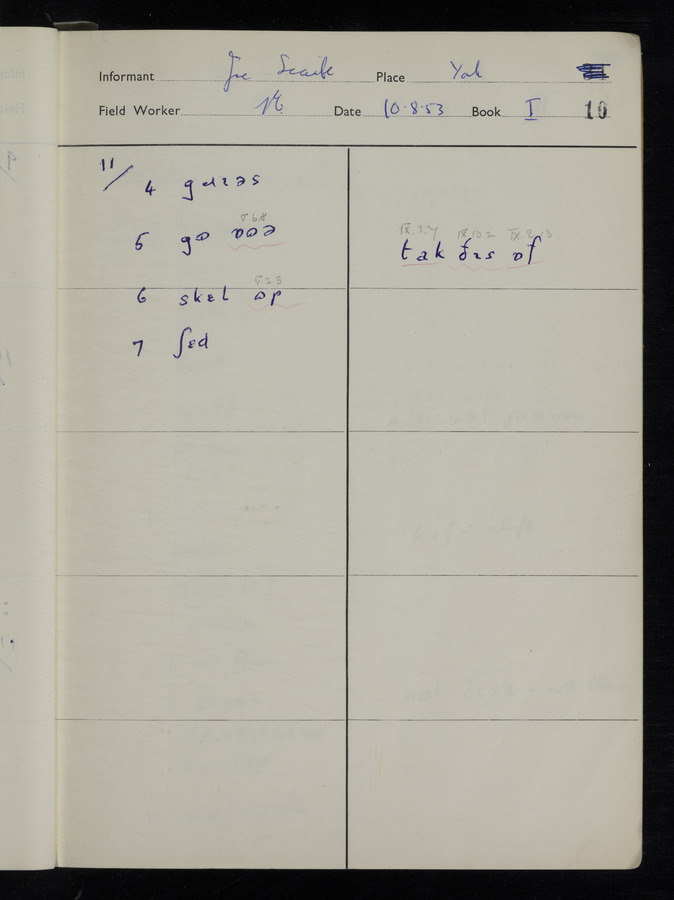 Informant Joe Scaife Place Yok
Field Worker Date 10-8-53 Book I 10
11/ 4 gɑɪəs
V.6.8
5 gɒ ɒʊə
V.2.5
6 skɛl ɒp
7 ʃɛd
IX.3.7 IX.10.2 IX.2.13
tak ðɪs ɒf